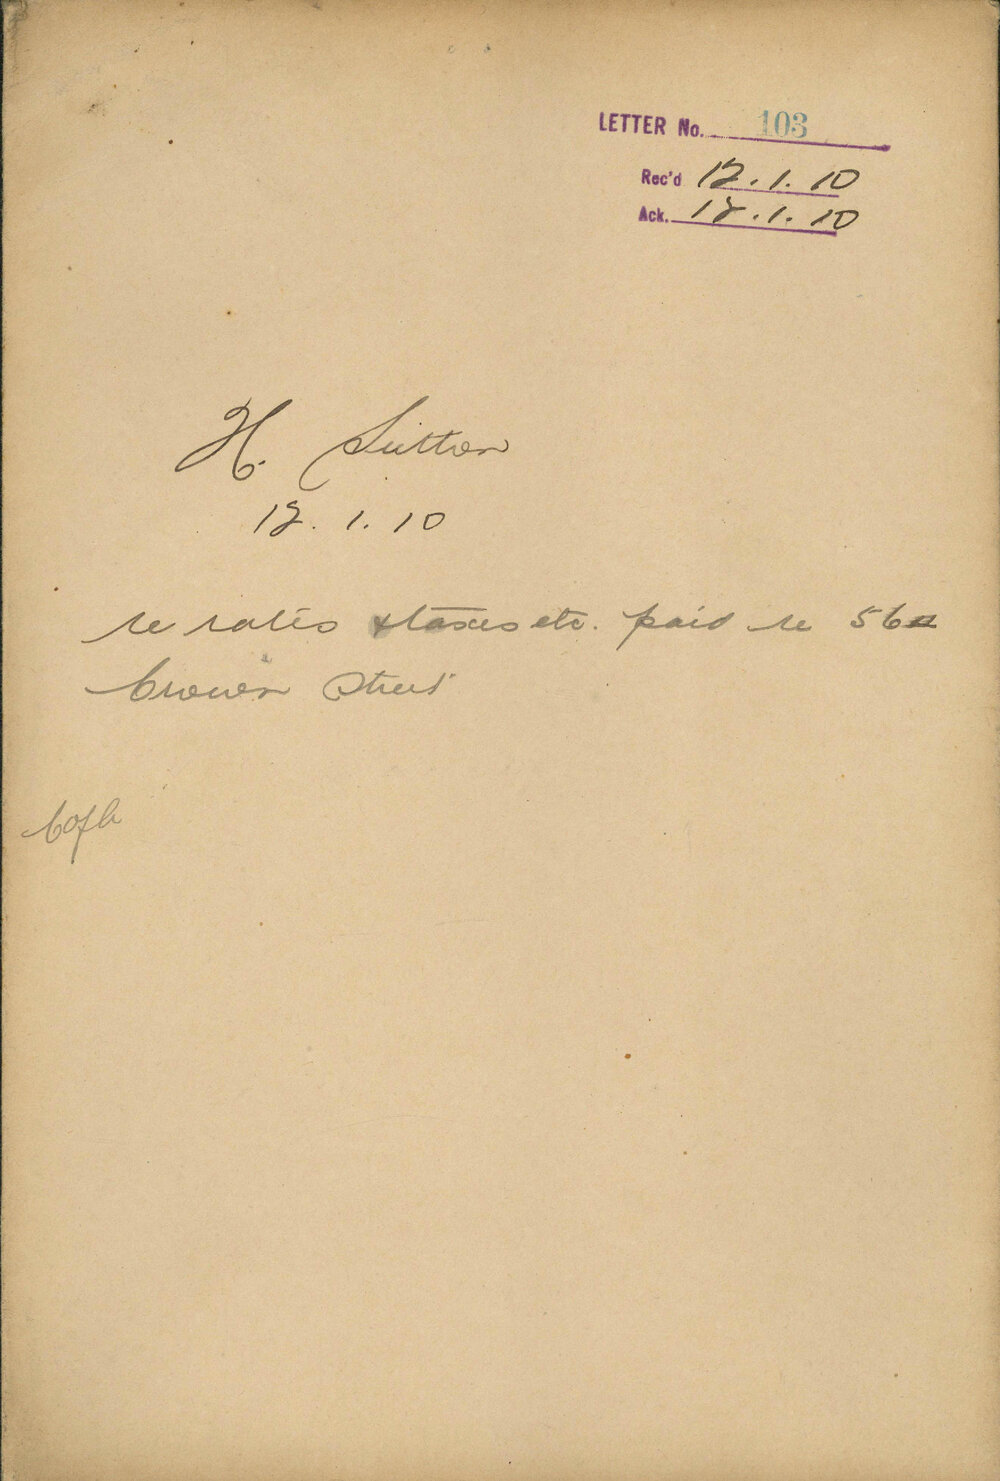 LETTER No. 103
Rec'd 12.1.10
Ack. 12.1.10
H. Sutton
12.1.10
re rates & taxes etc. paid re 56a
Crown Street